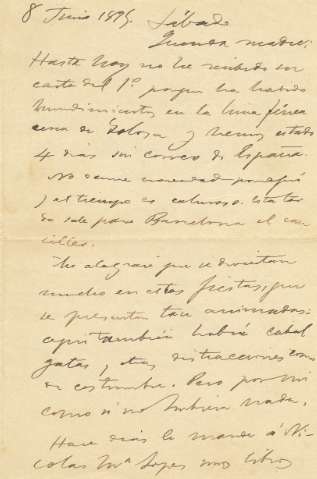 8 Junio 1895. Sábado
Querida madre:
Hasta hoy no he recibido su
carta del 1º porque ha habido
hundimientos en la línea férrea
cerca de Tolosa y hemos estado
4 días sin correo de España.
No ocurre novedad por aquí
y el tiempo es caluroso. Esta tar
de sale para Barcelona el
Me alegraré que se diviertan
mucho en estas fiestas, que
se presentan tan animadas:
aquí también habrá cabal
gatas, y otras distracciones como
de costumbre. Pero por mi
como si no hubiera nada.
Hace días le mandé á Ni
colás Mª López unos libros